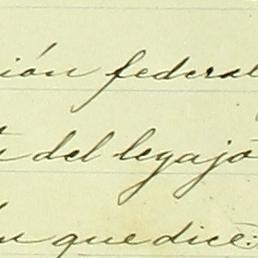 ión federal
del legajo
que dice: